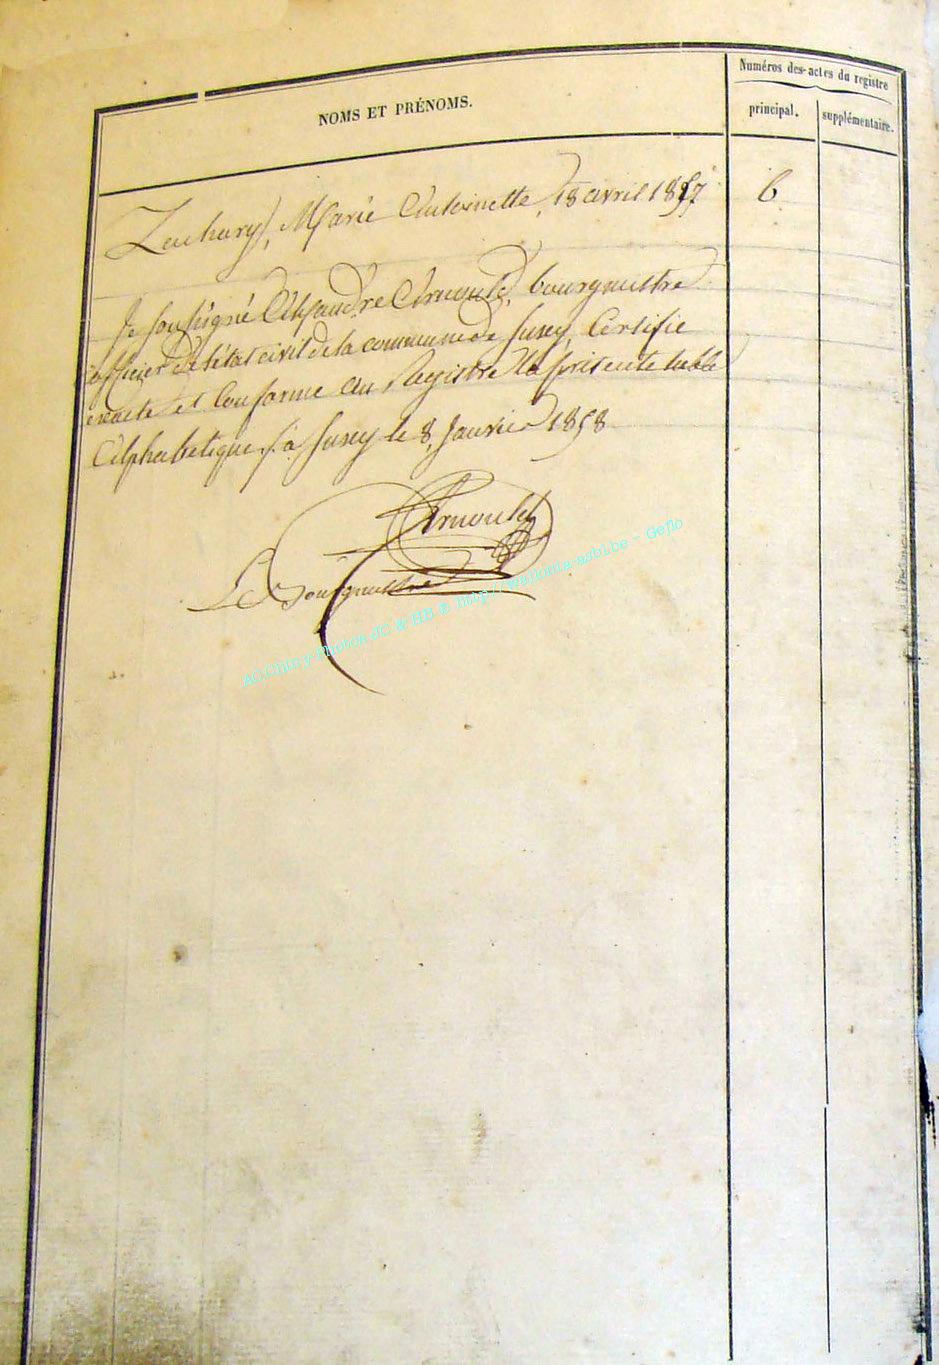 Numéros des actes du registre
NOMS ET PRÉNOMS.
principal.
supplémentaire.
Zachary, Marie Antoinette, 18 avril 1857
6
Je soussigné Alexandre Arnould, bourgmestre
officier de l'état civil de la commune de Jusey, Certifie
exacte et Conforme au Registre la présente table
Alphabetique. à Jusey le 8 Janvier 1858
Arnould
Le Bourgmestre
AC Chiny-Photos JC & HB @ http://wallonia-asbl.be - Geflo